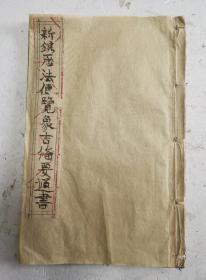 新鐫历法便覽象吉俻要通書